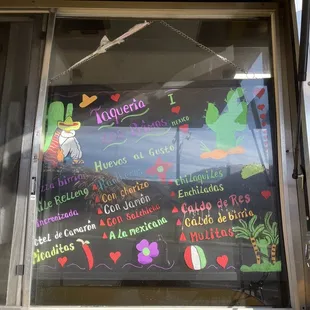 Taqueria
I ♥
MEXICO
Huevos al Gusto
Pizza birria
Con Chorizo
Con Jamón
Con Salchicha
A la mexicana
Chile Relleno
Coctel de Camarón
Picaditas
Chilaquiles
Enchiladas
Caldo de Res
Caldo de birria
Mulitas